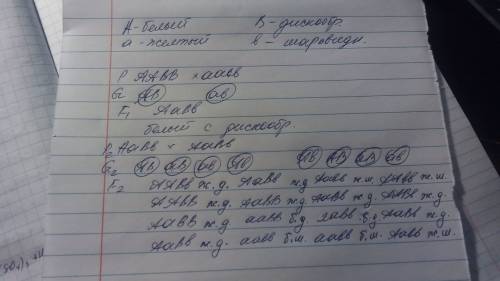 А-белый В-дискообр.
а-желтый в-шаровидн.
Р ААВВ × аавв
G АВ ав
F₁ АаВв
белый с дискообр.
Р₂ АаВв × АаВв
G₂ АВ аВ
F₂ ААВВ ж.д. АаВВ ж.д АаВв ж.ш. ААВв ж.ш.
ААВВ ж.д. АаВВ ж.д АаВв ж.д. ААВв ж.д.
АаВВ ж.д ааВВ б.д ааВв б.д АаВв ж.д.
АаВв ж.д. аавв б.ш. аавв б.ш. АаВв ж.ш.